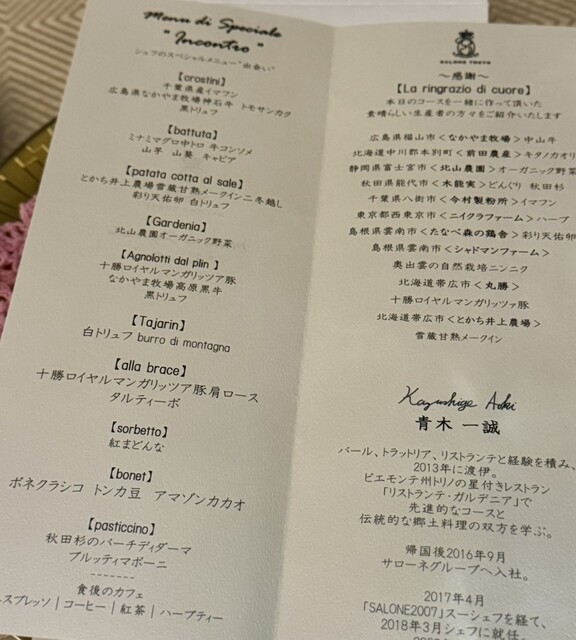 Menu di Speciale
" Incontro "
シェフのスペシャルメニュー"出会い"
【crostini】
千葉県産イマフン
広島県なかやま牧場神石牛 トモサンカク
黒トリュフ
【battuta】
ミナミマグロ中トロ 牛コンソメ
山芋 山葵 キャビア
【patata cotta al sale】
とかち井上農場雪蔵甘熟メークイン二冬越し
彩り天佑卵 白トリュフ
【Gardenia】
北山農園オーガニック野菜
【Agnolotti dal plin 】
十勝ロイヤルマンガリッツア豚
なかやま牧場高原黒牛
黒トリュフ
【Tajarin】
白トリュフ burro di montagna
【alla brace】
十勝ロイヤルマンガリッツア豚肩ロース
タルティーボ
【sorbetto】
紅まどんな
【bonet】
ボネクラシコ トンカ豆 アマゾンカカオ
【pasticcino】
秋田杉のバーチディダーマ
ブルッティマボーニ
-------
食後のカフェ
スプレッソ | コーヒー | 紅茶 | ハーブティー
SALONE TOKYO
～感謝～
【La ringrazio di cuore】
本日のコースを一緒に作って頂いた
素晴らしい生産者の方々をご紹介いたします
広島県福山市＜なかやま牧場＞中山牛
北海道中川郡本別町＜前田農産＞キタノカオリ
静岡県富士宮市＜北山農園＞オーガニック野菜
秋田県能代市＜木能実＞どんぐり 秋田杉
千葉県八街市＜今村製粉所＞イマフン
東京都西東京市＜ニイクラファーム＞ハーブ
島根県雲南市＜たなべ森の鶏舎＞彩り天佑卵
島根県雲南市＜シャドマンファーム＞
奥出雲の自然栽培ニンニク
北海道帯広市＜丸勝＞
十勝ロイヤルマンガリッツァ豚
北海道帯広市＜とかち井上農場＞
雪蔵甘熟メークイン
Kazushige Aoki
青木 一誠
バール、トラットリア、リストランテと経験を積み、
2013年に渡伊。
ピエモンテ州トリノの星付きレストラン
「リストランテ・ガルデニア」で
先進的なコースと
伝統的な郷土料理の双方を学ぶ。
帰国後2016年9月
サローネグループへ入社。
2017年4月
「SALONE2007」スーシェフを経て、
2018年3月シェフに就任。